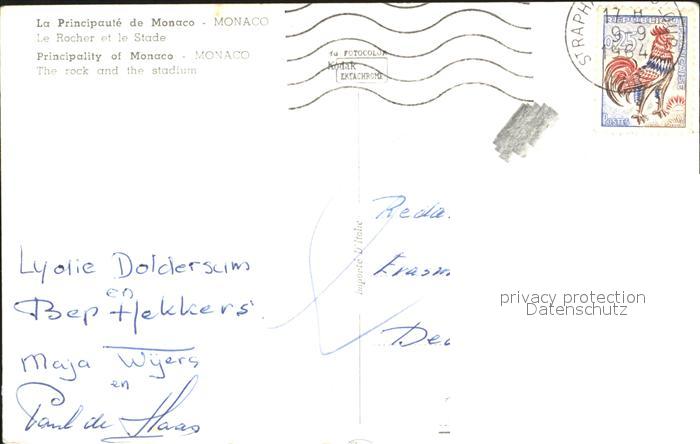 La Principauté de Monaco - MONACO
Le Rocher et le Stade
Principality of Monaco - MONACO
The rock and the stadium
FOTOCOLOR
Kodak
EKTACHROME
17 H
9-9
STRAPH
POSTES
Importé d'Italie
Reda.
Erasm
De
privacy protection
Datenschutz
Lyolie Doldersum
en
Bep Hekkers
Maja Wijers
en
Paul de Haas